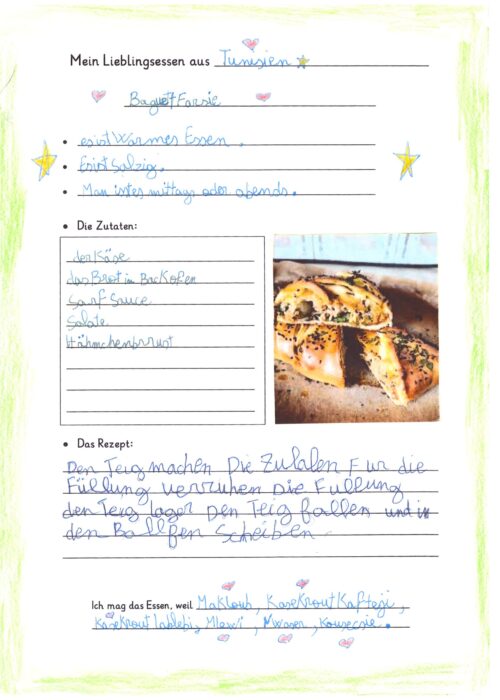 Mein Lieblingsessen aus Tunisien
Baguet Farsie
• es ist Warmes Essen.
• Es ist Salzig.
• Man ist es mittags oder abends.
• Die Zutaten:
der Käse
das Brot in Backofen
Sarf Sauce
Salate
Hähmchenbrrust
• Das Rezept:
Den Teig machen Die Zulalen Fur die
Füllung verruhen Die Fullung
den Teig lager Den Teig fallen und in
den Ballfen Scheiben
Ich mag das Essen, weil Makloub, Kasekrout Kafteji,
Kasekrout lablebi, Mlewi, Mwaser, Kousecsie.